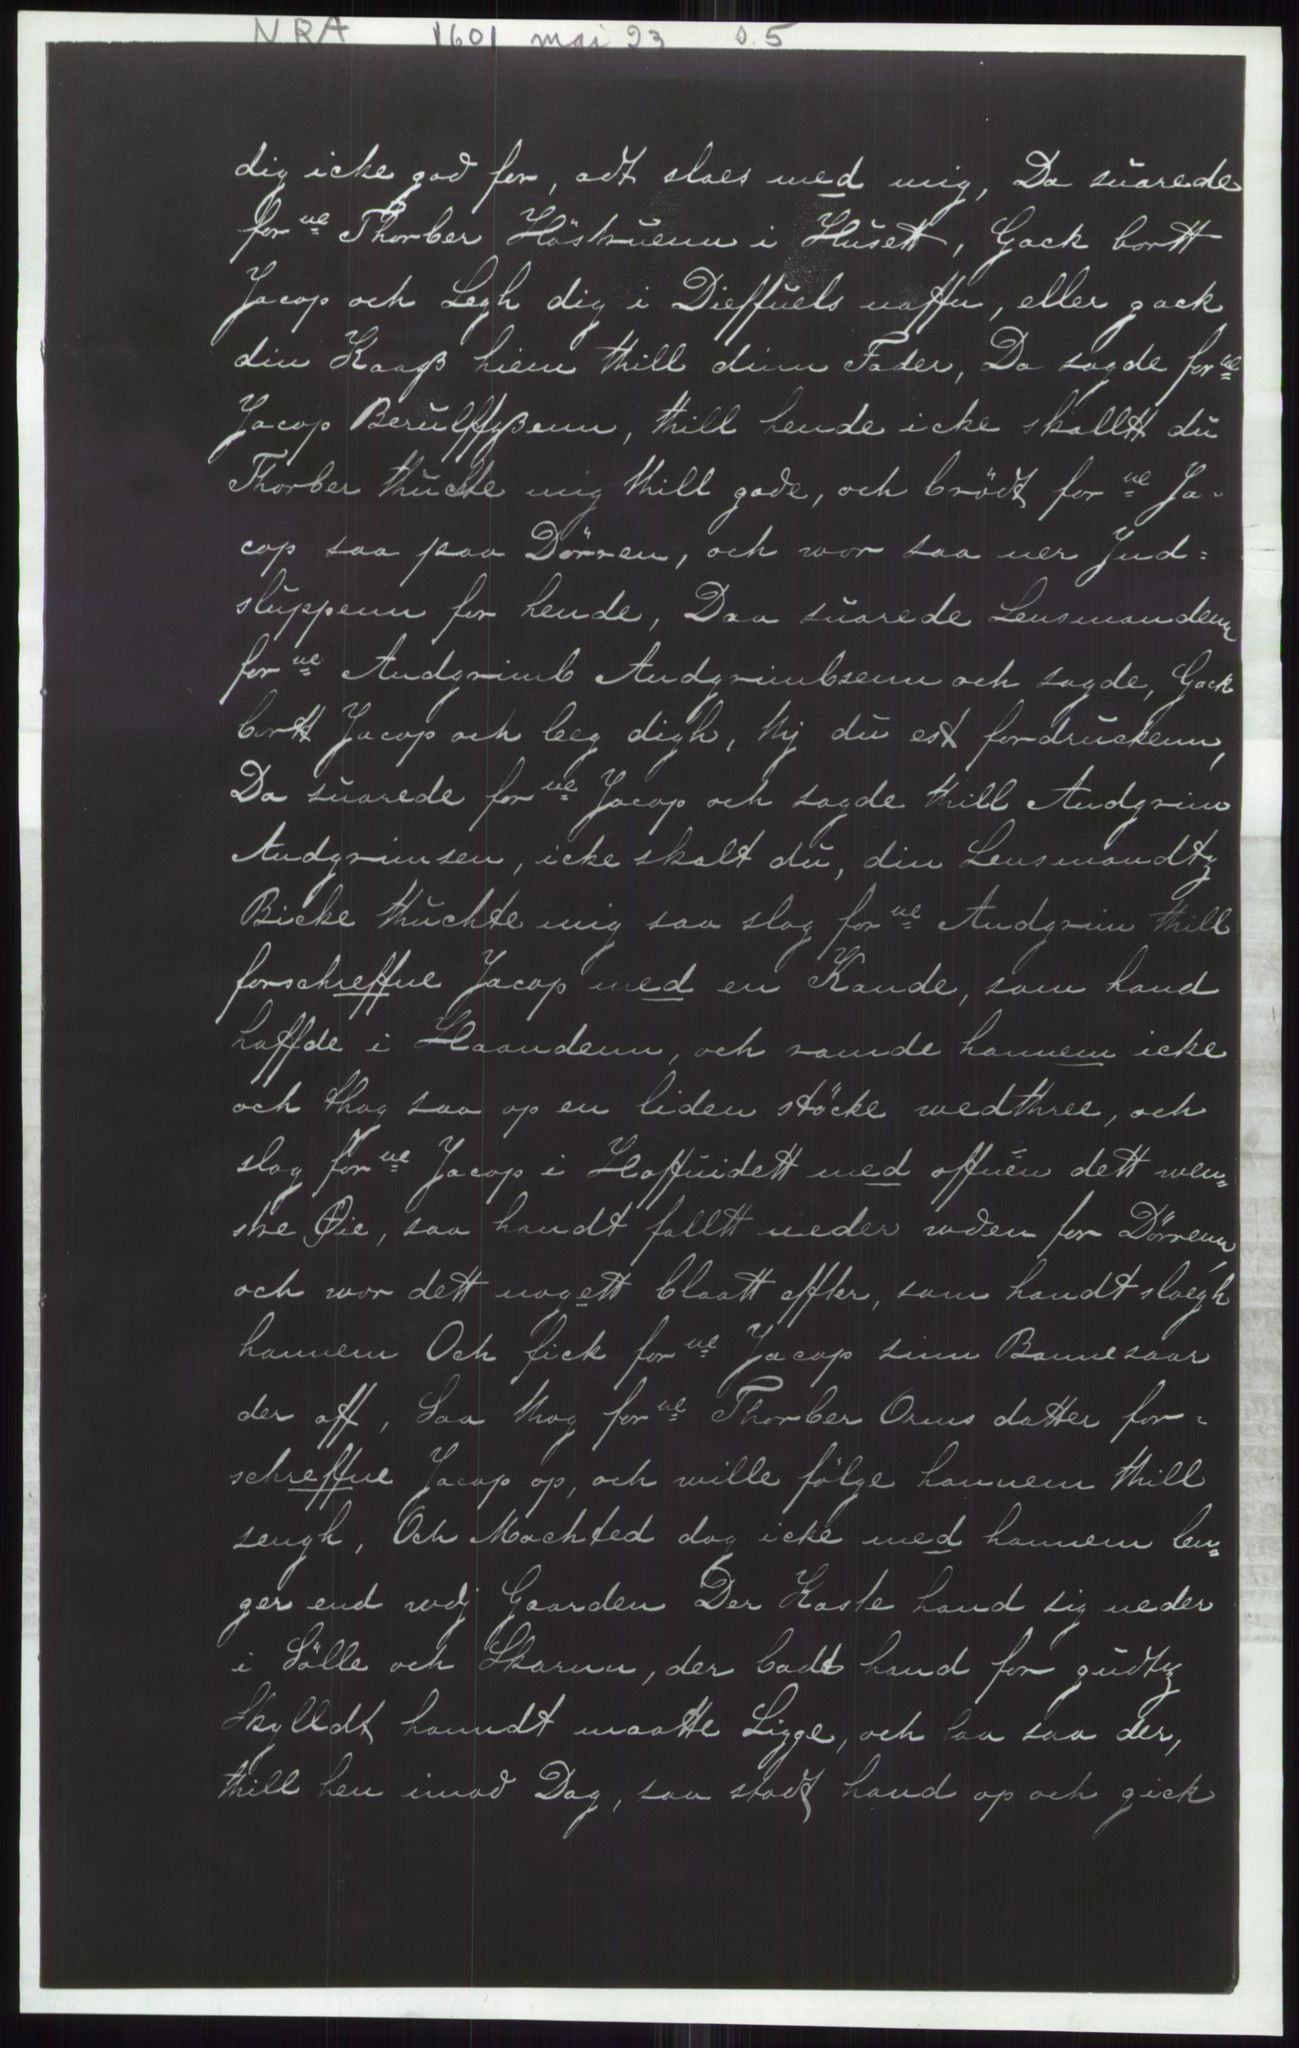 NRA 1601 mai 23 s. 5
dig icke god for, adt slaes med mig, Da suarede
for ne Thorber Höstruenn i Husett, Gack bortt
Jacop och Legh dig i Dieffuels naffn, eller gack
din Kaaß hiem thill dinn Fader, Da sagde for ne
Jacop Berulffßenn, thill hende icke skallt du
Thorber thuchte mig thill gode, och brödt for ne Ja-
cop saa paa Dörren, och wor saa ner Jnd=
sluppenn for hende, Daa suarede Lensmandenn
for ne Andgrimb Andgrimbsenn och sagde, Gack
bortt Jacop och leg digh, thj du est fordruckenn,
Da suarede for ne Jacop och sagde thill Andgrim
Andgrimsen, icke skalt du, din Lensmandtz
Bicke thuchte mig saa slog for ne Andgrim thill
forschreffne Jacop med en Kande, som hand
haffde i Haandenn, och ramde hannem icke
och thog saa op en liden stöcke wedthree, och
slog for ne Jacop i Hoffuidett med offuen dett wen=
stre Øie, saa handt falltt neder wden for Dörrenn,
och wor dett nogett blaatt effter, som handt sloegh
hannem Och fick for ne Jacop sinn Banne saar
der aff, Saa thog for ne Thorber Orms datter for-
schreffne Jacop op, och wille fölge hannem thill
sengh, Och Machted dog icke med hannem len=
ger end wdj Gaarden Der Kaste hand sig neder
i Sölle och Skarnn, der badt hand for gudtz
Skylldt hanndt maatte Ligge, och laa saa der,
thill hen imod Dag, saa stodt hand op och gick